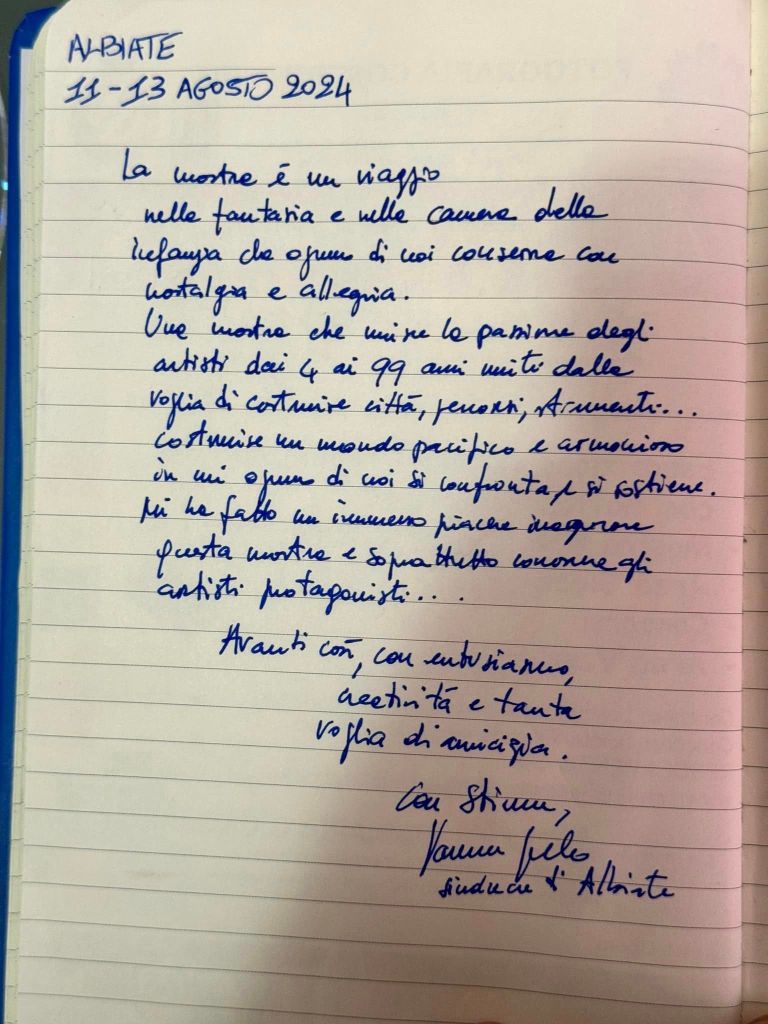 ALBIATE
11-13 AGOSTO 2024
La mostra è un viaggio
nella fantasia e nella camera della
infanzia che ognuno di noi conserva con
nostalgia e allegria.
Una mostra che unisce la passione degli
artisti dai 4 ai 99 anni uniti dalla
voglia di costruire città, percorsi, strumenti...
costruire un mondo pacifico e armonioso
in cui ognuno di noi si confronta e si sostiene.
Mi ha fatto un immenso piacere inaugurare
questa mostra e soprattutto conoscere gli
artisti protagonisti....
Avanti così, con entusiasmo,
creatività e tanta
voglia di amicizia.
Con stima,
sindaco di Albiate